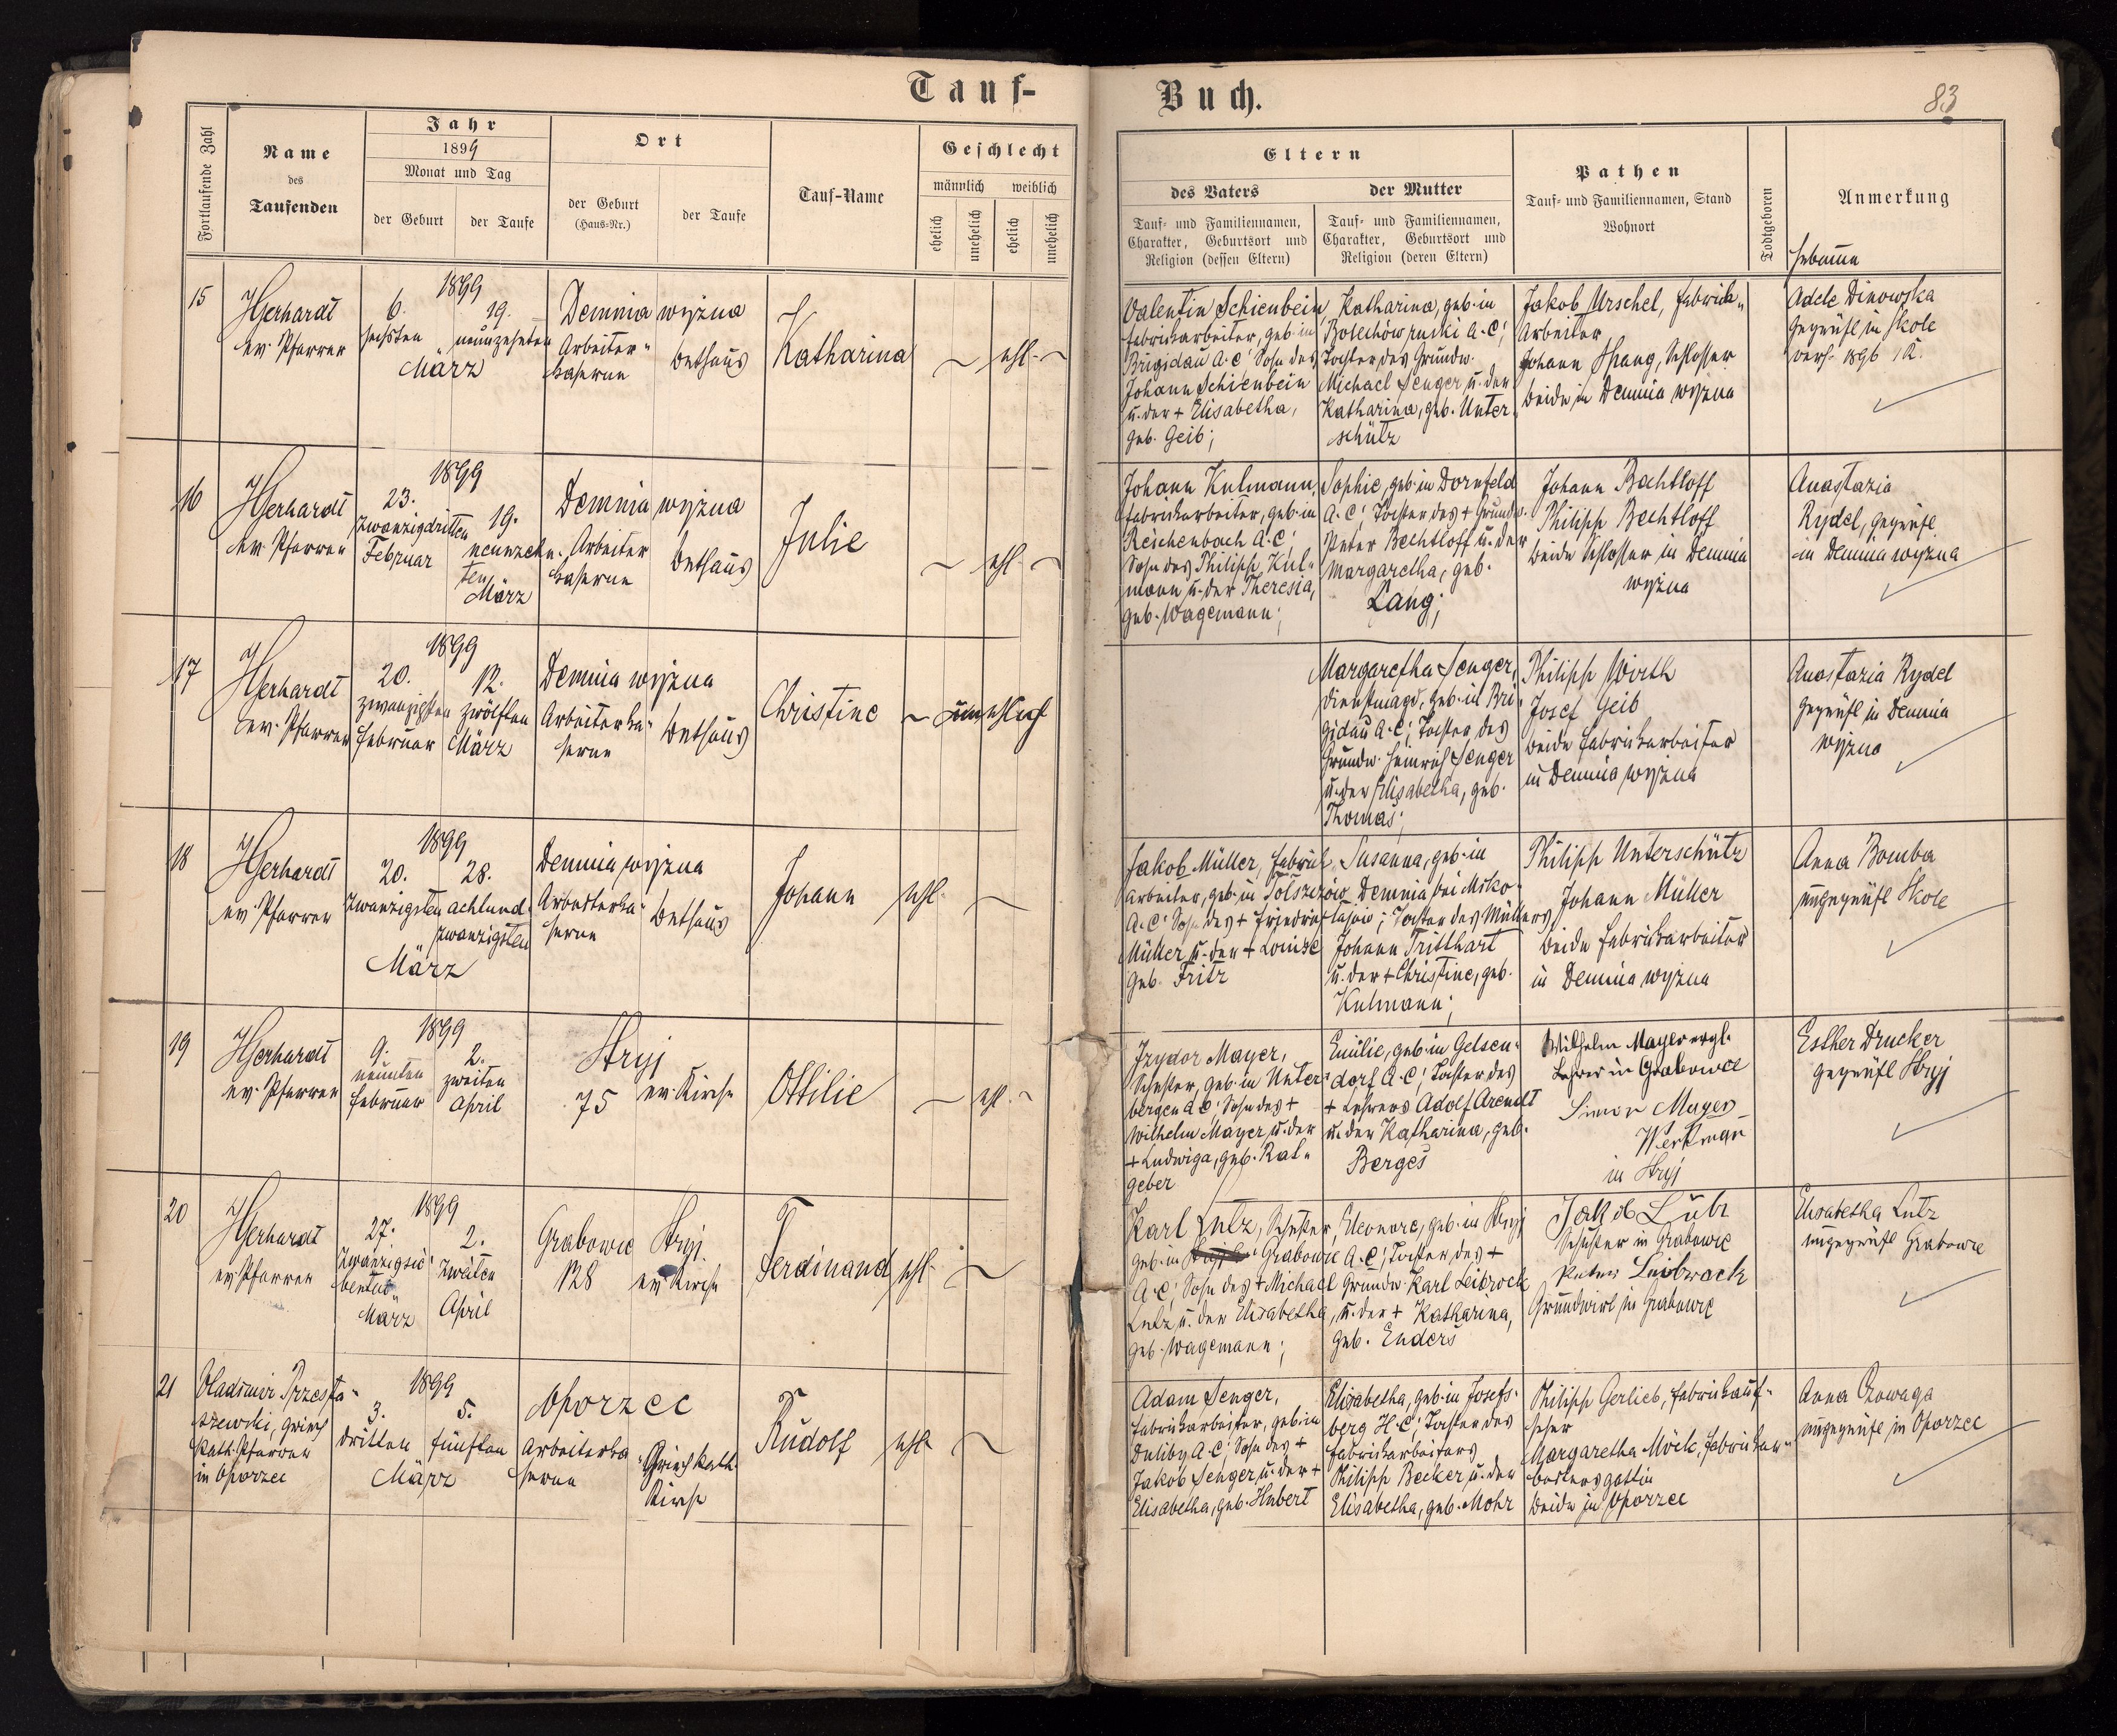 Tauf-
Buch.
83
Fortlaufende Zahl
Name
des
Taufenden
Jahr
1899
Monat und Tag
der Geburt
der Taufe
Ort
der Geburt
(Haus-Nr.)
der Taufe
Tauf-Name
Geschlecht
männlich
weiblich
ehelich
unehelich
ehelich
unehelich
Eltern
des Vaters
der Mutter
Tauf- und Familiennamen,
Charakter, Geburtsort und
Religion (dessen Eltern)
Tauf- und Familiennamen,
Charakter, Geburtsort und
Religion (deren Eltern)
Pathen
Tauf- und Familiennamen, Stand
Wohnort
Todtgeboren
Anmerkung
Hebamme
15
HGerhardt
ev. Pfarrer
1899
6.
sechsten
19.
neunzehnten
März
Demnia wyzna
Arbeiter-
kaserne
Bethaus
Katharina
ehl.
Valentin Schienbein
Fabriksarbeiter, geb. in
Brigidau A.C; Sohn des
Johann Schienbein
u. der + Elisabetha,
geb. Geib;
Katharina, geb. in
Bolechów ruski A.C;
Tochter des Grundw.
Michael Senger u. der
Katharina, geb. Unter-
schütz
Jakob Urschel, Fabriks-
Arbeiter
Johann Spang, Schlosser
beide in Demnia wyzna
Adele Dinowska
geprüft in Skole
16
HGerhardt
ev. Pfarrer
1899
23.
zwanzigdritten
Februar
19.
neunzehn-
ten
März
Demnia wyzna
Arbeiter
kaserne
Bethaus
Julie
ehl.
Johann Kulmann,
Fabriksarbeiter, geb. in
Reichenbach A.C;
Sohn des Philipp Kul-
mann u. der Theresia,
geb. Wagemann;
Sophie, geb. in Dornfeld
A.C; Tochter des + Grundw.
Peter Bechtloff u. der
Margaretha, geb.
Lang;
Johann Bechtloff
Philipp Bechtloff
beide Schlosser in Demnia
wyzna
Anastazia
Rydel, geprüft
in Demnia wyzna
17
HGerhardt
ev. Pfarrer
1899
20.
zwanzigsten
Februar
12.
zwölften
März
Demnia wyzna
Arbeiterka-
serne
Bethaus
Christine
unehlich
Margaretha Senger,
Dienstmagd, geb. in Bri-
gidau A.C; Tochter des
Grundw. Heinrich Senger
u. der Elisabetha, geb.
Thomas;
Philipp Wirth
Josef Geib
beide Fabriksarbeiter
in Demnia wyzna
Anastazia Rydel
geprüft in Demnia
wyzna
18
HGerhardt
ev. Pfarrer
1899
20.
zwanzigsten
28.
achtund-
zwanzigsten
März
Demnia wyzna
Arbeiterka-
serne
Bethaus
Johann
ehl.
Jakob Müller, Fabriks-
arbeiter, geb. in Tolszczów
A.C; Sohn des + Friedrich
Müller u. der + Louize
geb. Fritz
Susanna, geb. in
Demnia bei Miko-
lajow; Tochter des Müllers
Johann Tritthart
u. der + Christine, geb.
Kulmann;
Philipp Unterschütz
Johann Müller
beide Fabriksarbeiter
in Demnia wyzna
Anna Bomba
ungeprüft Skole
19
HGerhardt
ev. Pfarrer
1899
9.
neunten
Februar
2.
zweiten
April
Stryj
75
ev. Kirche
Ottilie
ehl.
Izydor Mayer,
Schuster, geb. in Unter-
bergen A.C; Sohn des +
Wilhelm Mayer u. der
+ Ludwiga, geb. Rat-
geber
Emilie, geb. in Gelsen-
dorf A.C; Tochter des
+ Lehrers Adolf Arendt
u. der Katharina, geb.
Berges
Wilhelm Mayer evgl.
Lehrer in Grabowce
Mayer
in Stryj
Esther Drucker
geprüft Stryj
20
HGerhardt
ev. Pfarrer
1899
27.
zwanzigsie-
benten
März
2.
zweiten
April
Grabowce
128
Stryj
ev. Kirche
Ferdinand
ehl.
Karl Lutz, Schuster,
geb. in Grabowce
A.C; Sohn des + Michael
Lutz u. der Elisabetha,
geb. Wagemann;
Eleonore, geb. in Stryj
A.C; Tochter des +
Grundw. Karl Leibrock
u. der + Katharina,
geb. Enders
Jakob
Schuster in Grabowce
Peter Leibrock
Grundwirt in Grabowce
Elisabetha Lutz
ungeprüft Grabowce
21
griech
kath. Pfarrer
in Oporzec
1899
3.
dritten
5.
fünften
März
Oporzec
Arbeiterka-
serne
Griech kath.
Kirche
Rudolf
ehl.
Adam Senger,
Fabriksarbeiter, geb. in
Duliby A.C; Sohn des +
Jakob Senger u. der +
Elisabetha, geb. Hubert
Elisabetha, geb. in Josefs-
berg H.C; Tochter des
Fabriksarbeiters
Philipp Becker u. der
Elisabetha, geb. Mohr
Philipp Gerlieb, Fabriksauf-
seher
Margaretha Möck, Fabriksar-
beitersgattin
beide in Oporzec
Anna
ungeprüft in Oporzec